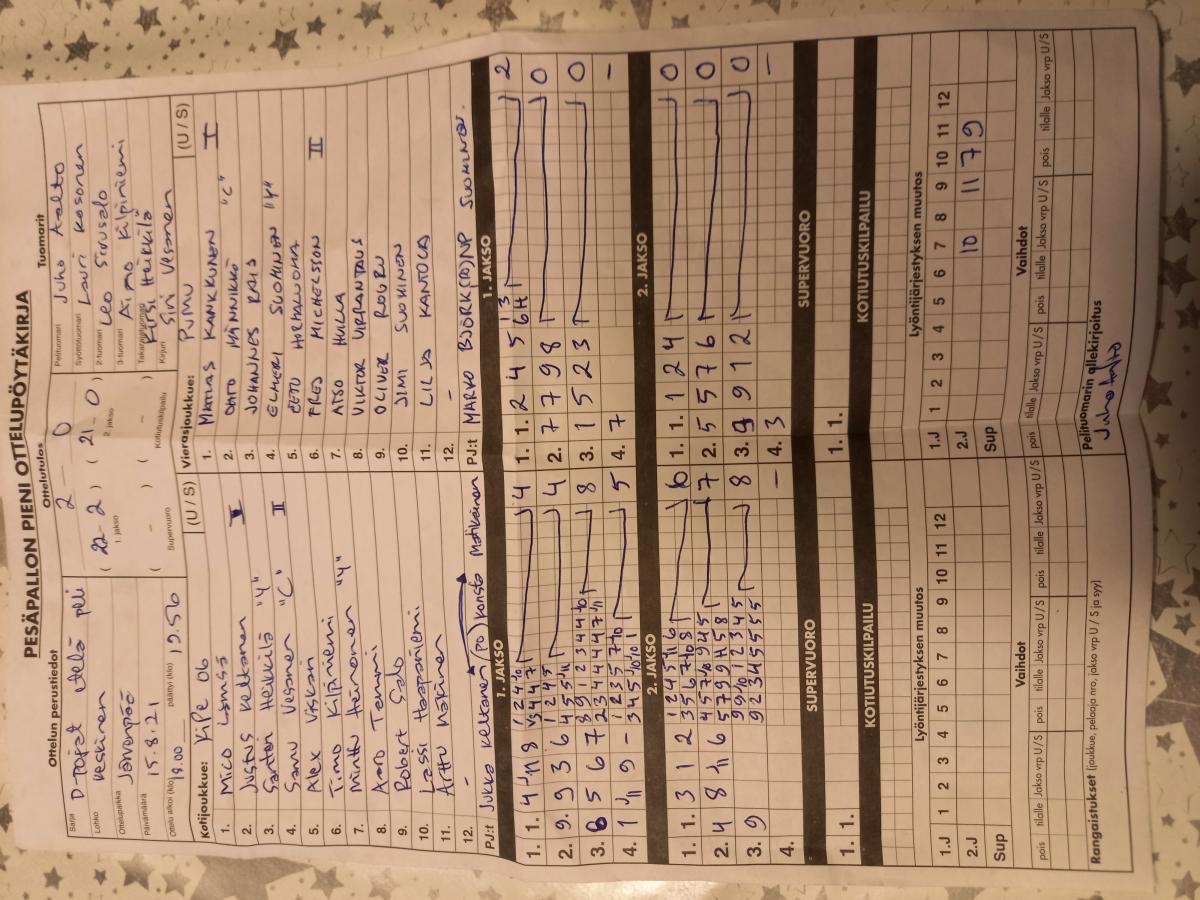 PESÄPALLON PIENI OTTELUPÖYTÄKIRJA
Ottelun perustiedot
Sarja D-pojat etelä peli
Lohko keskinen
Ottelupaikka Järvenpää
Päivämäärä 15.8.21
Ottelu alkoi (klo) 18.00 päättyi (klo) 19.56
Ottelutulos
2 - 0
( 22 - 2 ) ( 21 - 0 )
1. jakso 2. jakso
( - ) ( - )
Supervuoro Kotiutuskilpailu
Tuomarit
Pelituomari Juho Aalto
Syöttötuomari Lauri Kosonen
2-tuomari Leo Sirusalo
3-tuomari Aimo Kilpiniemi
Takarajatuomari Kirsi Heikkilä
Kirjuri Siri Vesanen
Kotijoukkue: Kipe 06 (U / S)
1. Mico Lamsä
2. Justus Keltanen I
3. Santeri Heikkilä "Y"
4. Samu Vesanen "C" II
5. Alex Viskari
6. Timo Kilpiniemi
7. Minttu Heinonen "Y"
8. Aaro Tammi
9. Robert Salo
10. Lassi Haapaniemi
11. Arttu Mäkinen
12. -
PJ:t Jukka Keltanen (po) Konsta Matikainen
Vierasjoukkue: PuMu (U / S)
1. MATIAS KANKKUNEN I
2. OATO MÄNNIKKÖ "C"
3. JOHANNES RAIS
4. ELMERI SUOMINEN "Y"
5. EETU HORHALUOMA
6. FRED MICHELSSON II
7. ATSO HULLA
8. VIKTOR VIRRANTAUS
9. OLIVER ROGERU
10. JIMI SUOMINEN
11. LILJA KANTOLA
12. -
PJ:t MARKO BJÖRK (PO) NP SUOMINEN
1. JAKSO
1. 1. 4 11 8 4
2. 9. 9 3 6 4
3. 6 5 6 7 8
4. 1 11 9 - 5
1. JAKSO
1. 1. 2 4 5 6H 2
2. 7 7 9 8 0
3. 1 5 2 3 0
4. 7 -
2. JAKSO
1. 1. 3 1 2 6
2. 4 8 11 6 7
3. 9 8
4. -
2. JAKSO
1. 1. 1 2 4 0
2. 5 5 7 6 0
3. 9 9 1 2 0
4. 3 -
SUPERVUORO
1. 1.
SUPERVUORO
1. 1.
KOTIUTUSKILPAILU
KOTIUTUSKILPAILU
Lyöntijärjestyksen muutos
1.J 1 2 3 4 5 6 7 8 9 10 11 12
2.J
Sup
Lyöntijärjestyksen muutos
1.J 1 2 3 4 5 6 7 8 9 10 11 12
2.J 10 11 7 9
Sup
Vaihdot
pois tilalle Jakso vrp U / S pois tilalle Jakso vrp U / S pois tilalle Jakso vrp U / S
Vaihdot
pois tilalle Jakso vrp U / S pois tilalle Jakso vrp U / S pois tilalle Jakso vrp U / S
Rangaistukset (joukkue, pelaaja nro, jakso vrp U / S ja syy)
Pelituomarin allekirjoitus
Juho Aalto